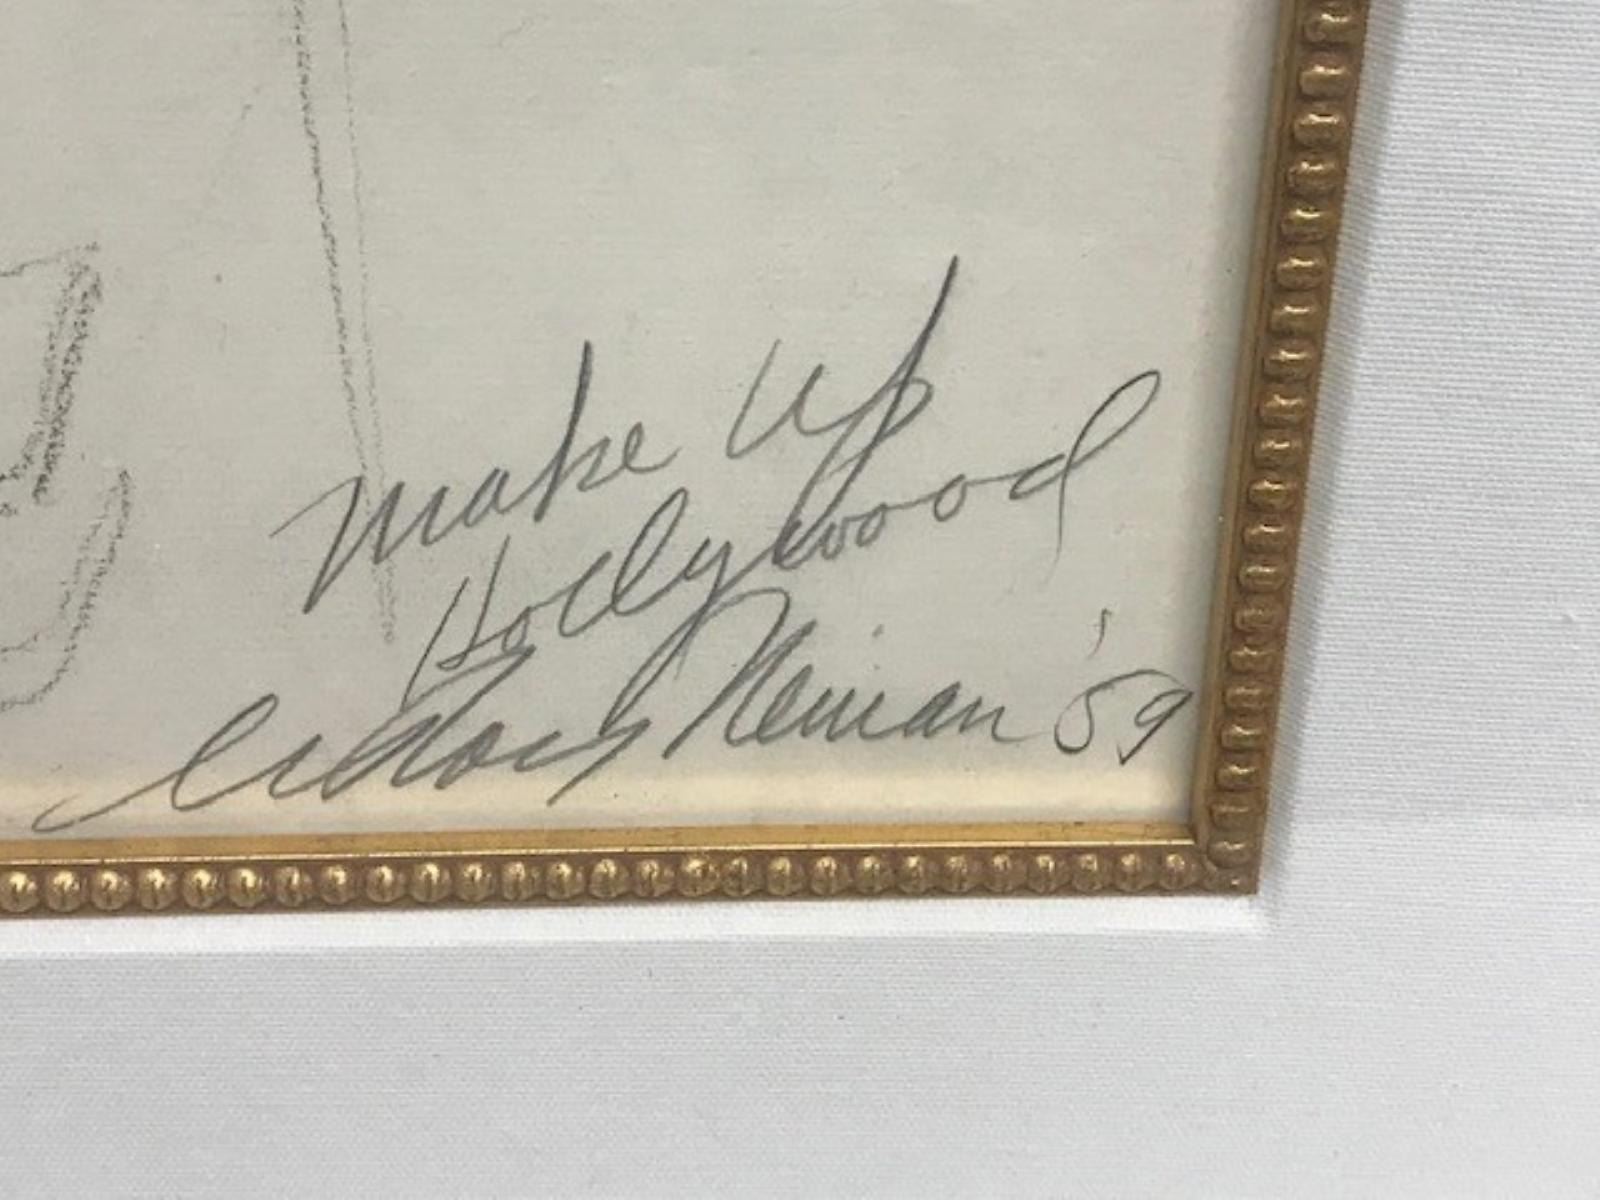 Make Up
Hollywood
LeRoy Neiman '59